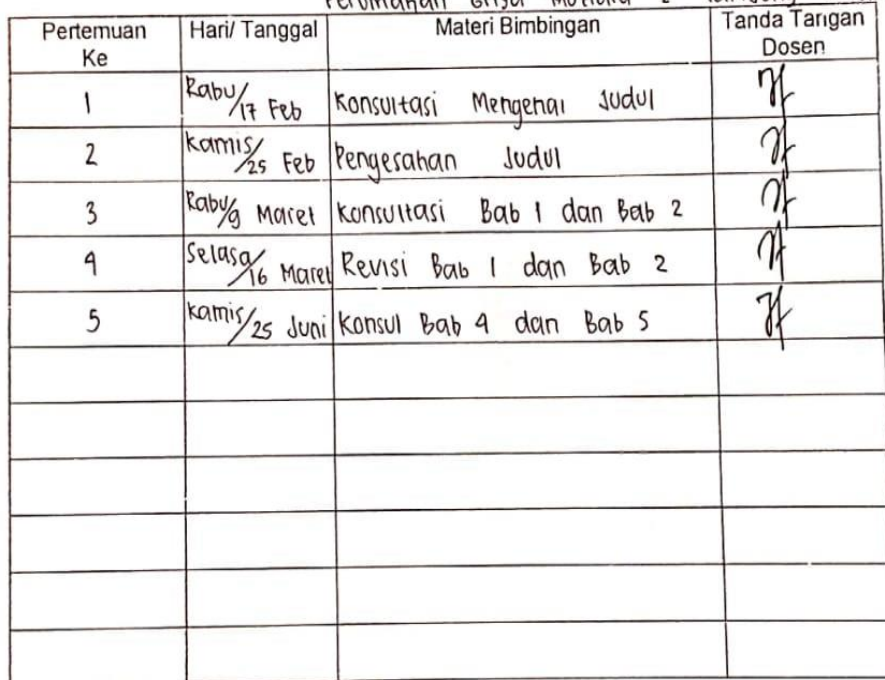 Pertemuan Ke Hari/ Tanggal Materi Bimbingan Tanda Tangan Dosen
1 Rabu/17 Feb Konsultasi Mengenai Judul
2 Kamis/25 Feb Pengesahan Judul
3 Rabu/9 Maret Konsultasi Bab 1 dan Bab 2
4 Selasa/16 Maret Revisi Bab 1 dan Bab 2
5 Kamis/25 Juni Konsul Bab 4 dan Bab 5